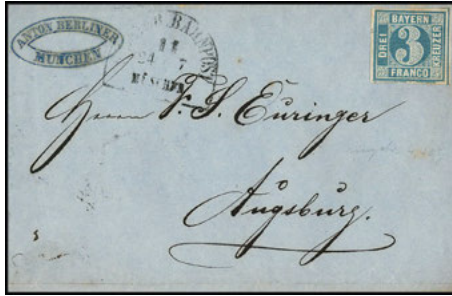 ANTON BERLINER
MÜNCHEN
BAHNPOST
11
24 7
MÜNCHEN
BAYERN
DREI
3
KREUZER
FRANCO
Herrn J. S. Euringer
Augsburg.